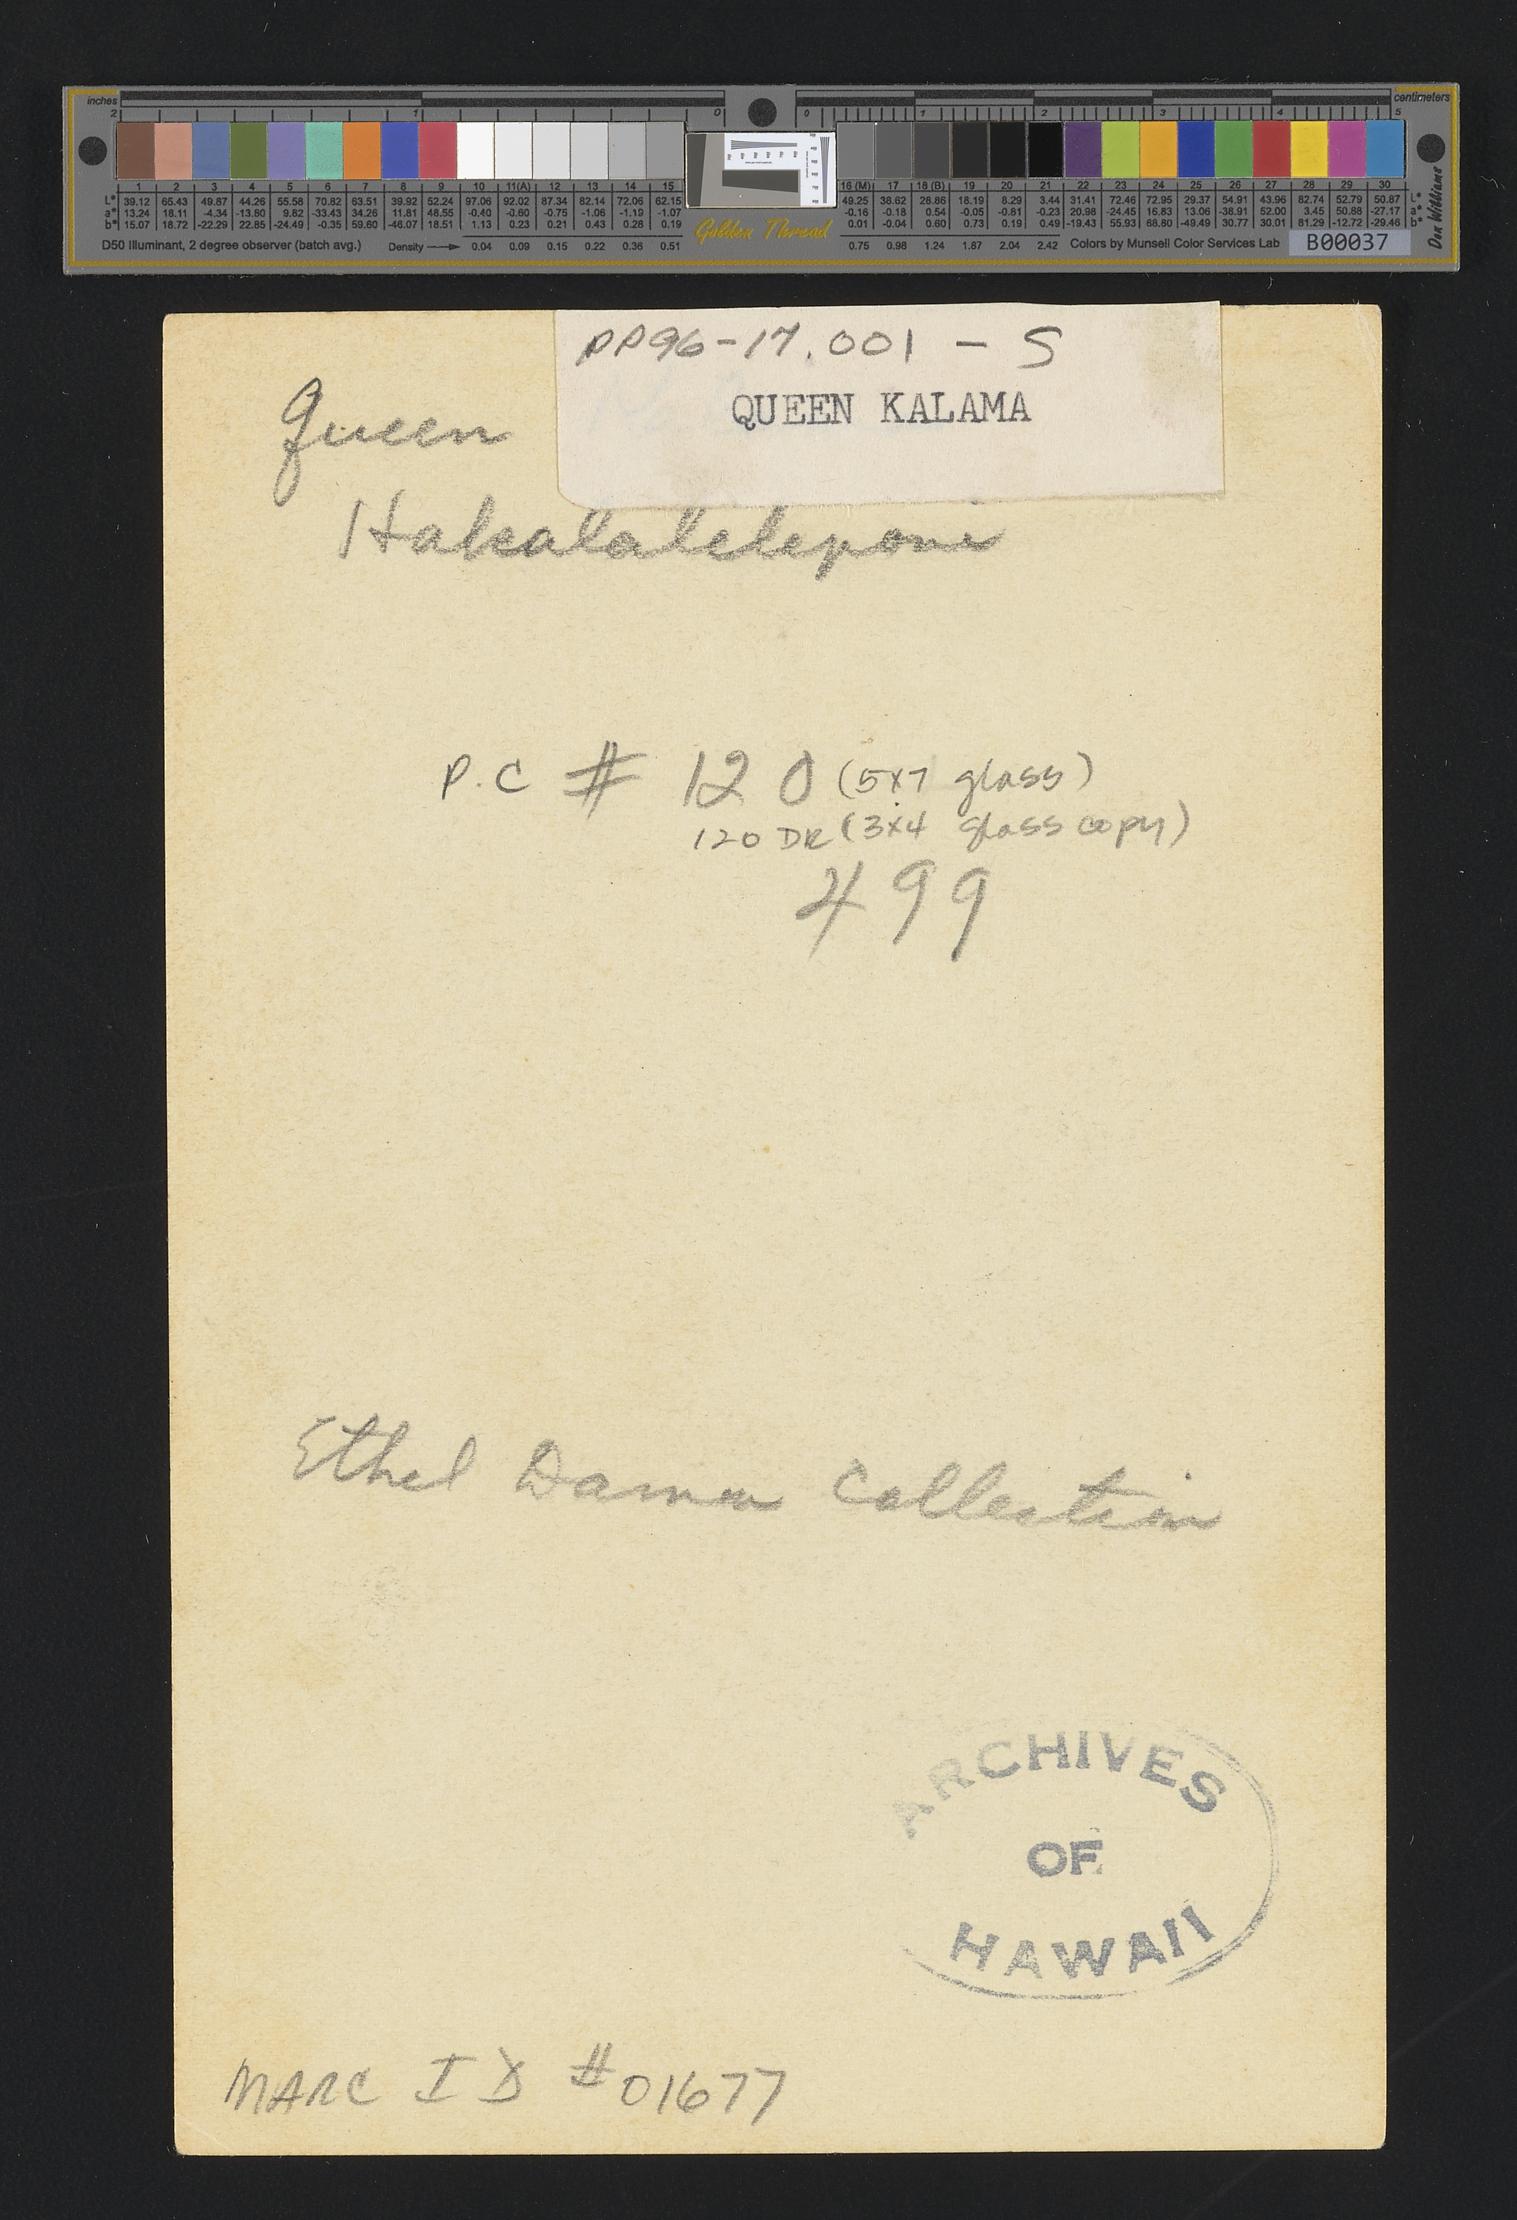 inches
centimeters
2 1 0 0 1 2 3 4 5
1 2 3 4 5 6 7 8 9 10 11(A) 12 13 14 15 16 (M) 17 18 (B) 19 20 21 22 23 24 25 26 27 28 29 30
L* 39.12 65.43 49.87 44.26 55.58 70.82 63.51 39.92 52.24 97.06 92.02 87.34 82.14 72.06 62.15 49.25 38.62 28.86 18.19 8.29 3.44 31.41 72.46 72.95 29.37 54.91 43.96 82.74 52.79 50.87 L*
a* 13.24 18.11 -4.34 -13.80 9.82 -33.43 34.26 11.81 48.55 -0.40 -0.60 -0.75 -1.06 -1.19 -1.07 -0.16 -0.18 0.54 -0.05 -0.81 -0.23 20.98 -24.45 16.83 13.06 -38.91 52.00 3.45 50.88 -27.17 a*
b* 15.07 18.72 -22.29 22.85 -24.49 -0.35 59.60 -46.07 18.51 1.13 0.23 0.21 0.43 0.28 0.19 0.01 -0.04 0.60 0.73 0.19 0.49 -19.43 55.93 68.80 -49.49 30.77 30.01 81.29 -12.72 -29.46 b*
D50 Illuminant, 2 degree observer (batch avg.) Density 0.04 0.09 0.15 0.22 0.36 0.51 Golden Thread 0.75 0.98 1.24 1.87 2.04 2.42 Colors by Munsell Color Services Lab B00037
Don Williams
PP96-17.001 - S
QUEEN KALAMA
Queen
Hakalaleleponi
P.C # 120 (5x7 glass)
120 DR (3x4 glass copy)
499
Ethel Damon Collection
ARCHIVES
OF
HAWAII
MARC ID #01677